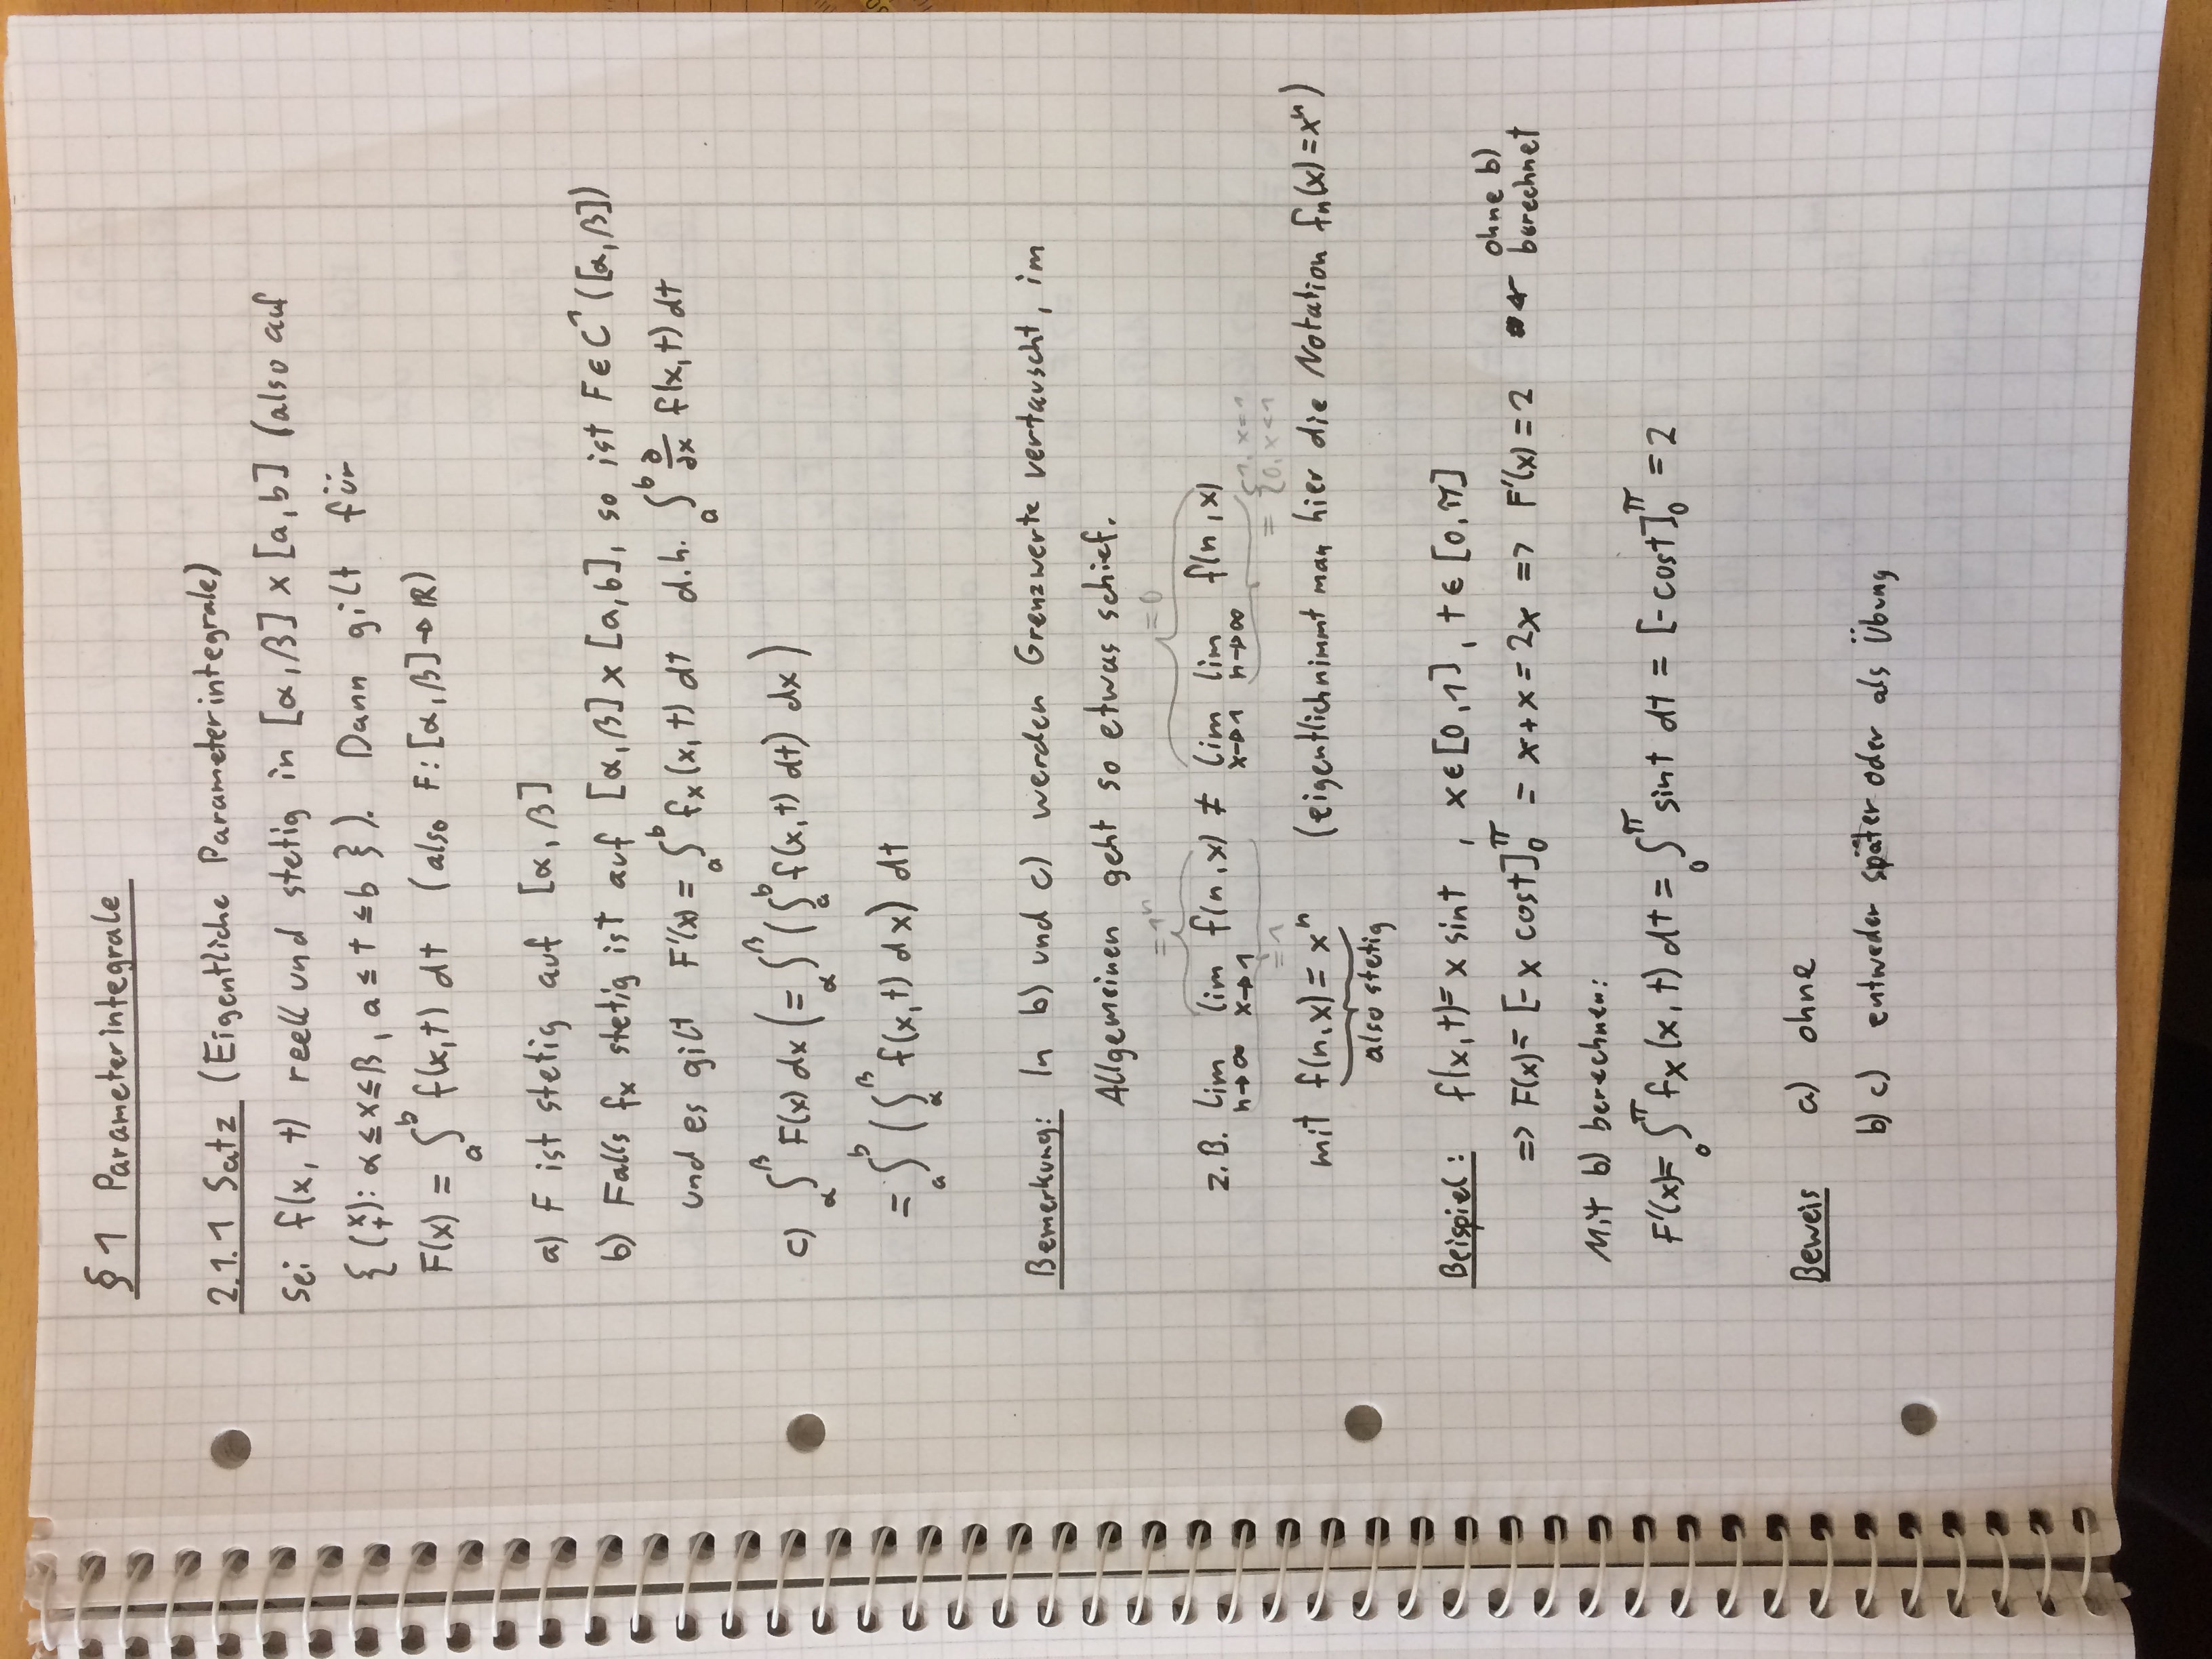 § 1 Parameterintegrale
2.1.1 Satz (Eigentliche Parameterintegrale)
Sei f(x, t) reell und stetig in [α, β] × [a, b] (also auf
{ (x t): α ≤ x ≤ β, a ≤ t ≤ b }). Dann gilt für
F(x) = ∫_a^b f(x,t) dt (also F: [α, β] → ℝ)
a) F ist stetig auf [α, β]
b) Falls f_x stetig ist auf [α, β] × [a, b], so ist F ∈ C^1 ([α, β])
und es gilt F'(x) = ∫_a^b f_x (x, t) dt d.h. ∫_a^b ∂/∂x f(x, t) dt
c) ∫_α^β F(x) dx (= ∫_α^β (∫_a^b f(x, t) dt) dx )
= ∫_a^b (∫_α^β f(x, t) dx) dt
Bemerkung: In b) und c) werden Grenzwerte vertauscht, im
Allgemeinen geht so etwas schief.
=1^n =0
z.B. lim_{n→∞} lim_{x→1} f(n, x) ≠ lim_{x→1} lim_{n→∞} f(n, x)
=1 = {1, x=1
{0, x<1
mit f(n,x) = x^n (eigentlich nimmt man hier die Notation f_n(x) = x^n)
also stetig
Beispiel: f(x, t) = x sin t , x ∈ [0, 1] , t ∈ [0, π]
=> F(x) = [-x cos t]_0^π = x + x = 2x => F'(x) = 2 ← ohne b)
berechnet
Mit b) berechnen:
F'(x) = ∫_0^π f_x (x, t) dt = ∫_0^π sin t dt = [-cos t]_0^π = 2
Beweis a) ohne
b) c) entweder später oder als Übung